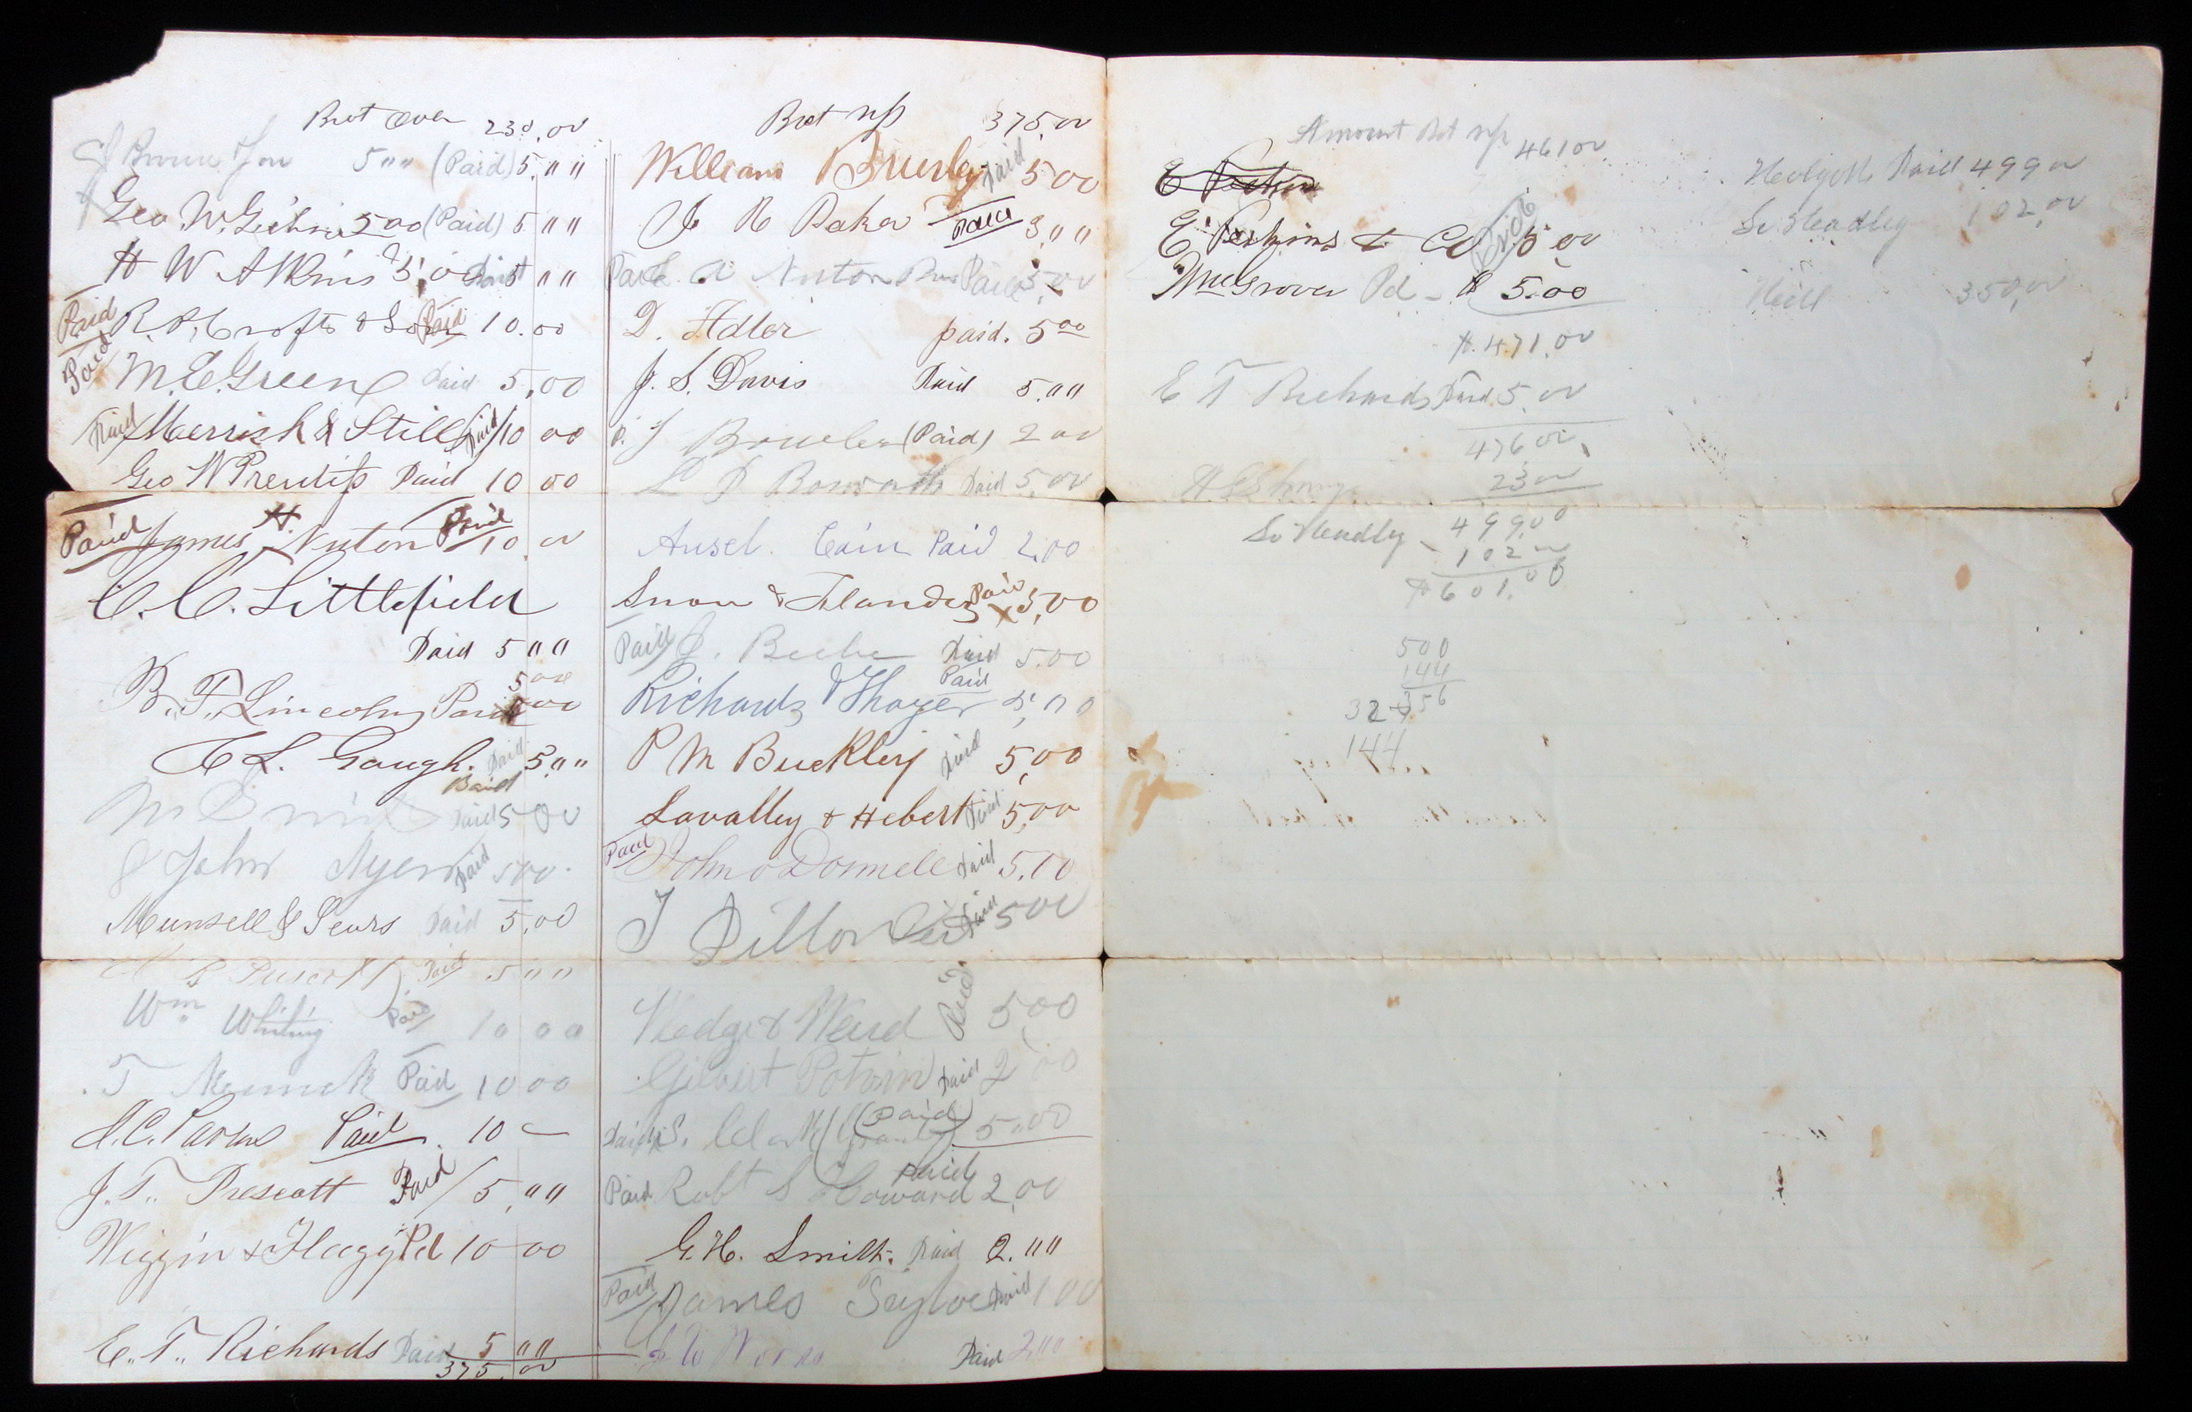 Brot over 230.00
Brown & Son 5 " " (Paid) 5. " "
Geo. W. 5 00 (Paid) 5 " "
H W Atkins 5.0 Paid 5 " "
Paid R. A. Crofts & Son Paid 10.00
Paid M. E. Green Paid 5.00
Paid Merrick & Still Paid 10 00
Geo W Prentiss Paid 10 00
Paid James H. Newton Paid 10.00
C. C. Littlefield
Paid 5 " "
5 00
B. F. Lincoln Paid 5 00
C L. Gough. Paid 5. " "
Paid
M Paid 5 00
John Paid 5 00
Munsell & Sears Paid 5.00
Paid 5 " "
Wm Whiting Paid 10 00
T Merrick Paid 10 00
Paid 10 —
J. T. Prescott Paid / 5. " "
Wiggin & Flagg Pd 10 00
E. T. Richards Paid 5 " "
375.00
Brot up 375.00
William Brierly Paid 5 00
J R Baker Paid 3. " "
Paid Newton Bros Paid 5.00
D. Adler paid. 5 00
J. S. Davis Paid 5. " "
(Paid) 2 00
L D Bosworth Paid 5.00
Ansel. Cain Paid 2.00
Snow & Paid 5.00
Paid J. Beebe Paid 5.00
Richards & Thayer Paid 5.00
P M Buckley Paid 5.00
Lavalley & Hebert Paid 5.00
Paid John O Donnell Paid 5.00
T Dillon Paid 5 00
& Ward Paid 5.00
Gilbert Potvin Paid 2.00
Paid S. Clark (Paid) 5.00
Paid Robt S Howard Paid 2.00
G. H. Smith. Paid 2. " "
Paid James Taylor Paid 1 00
Paid 2. " "
Amount Brot up 461 00
E Perkins
E. Perkins & Co Paid 5.00
Wm Grover Pd - $ 5.00
$ 471.00
E T Richards Paid 5.00
476 00
23 00
499.00
So Hadley 102 00
$ 601.00
500
144
356
32
144
Holyoke Paid 499 00
So Hadley 102.00
350.00